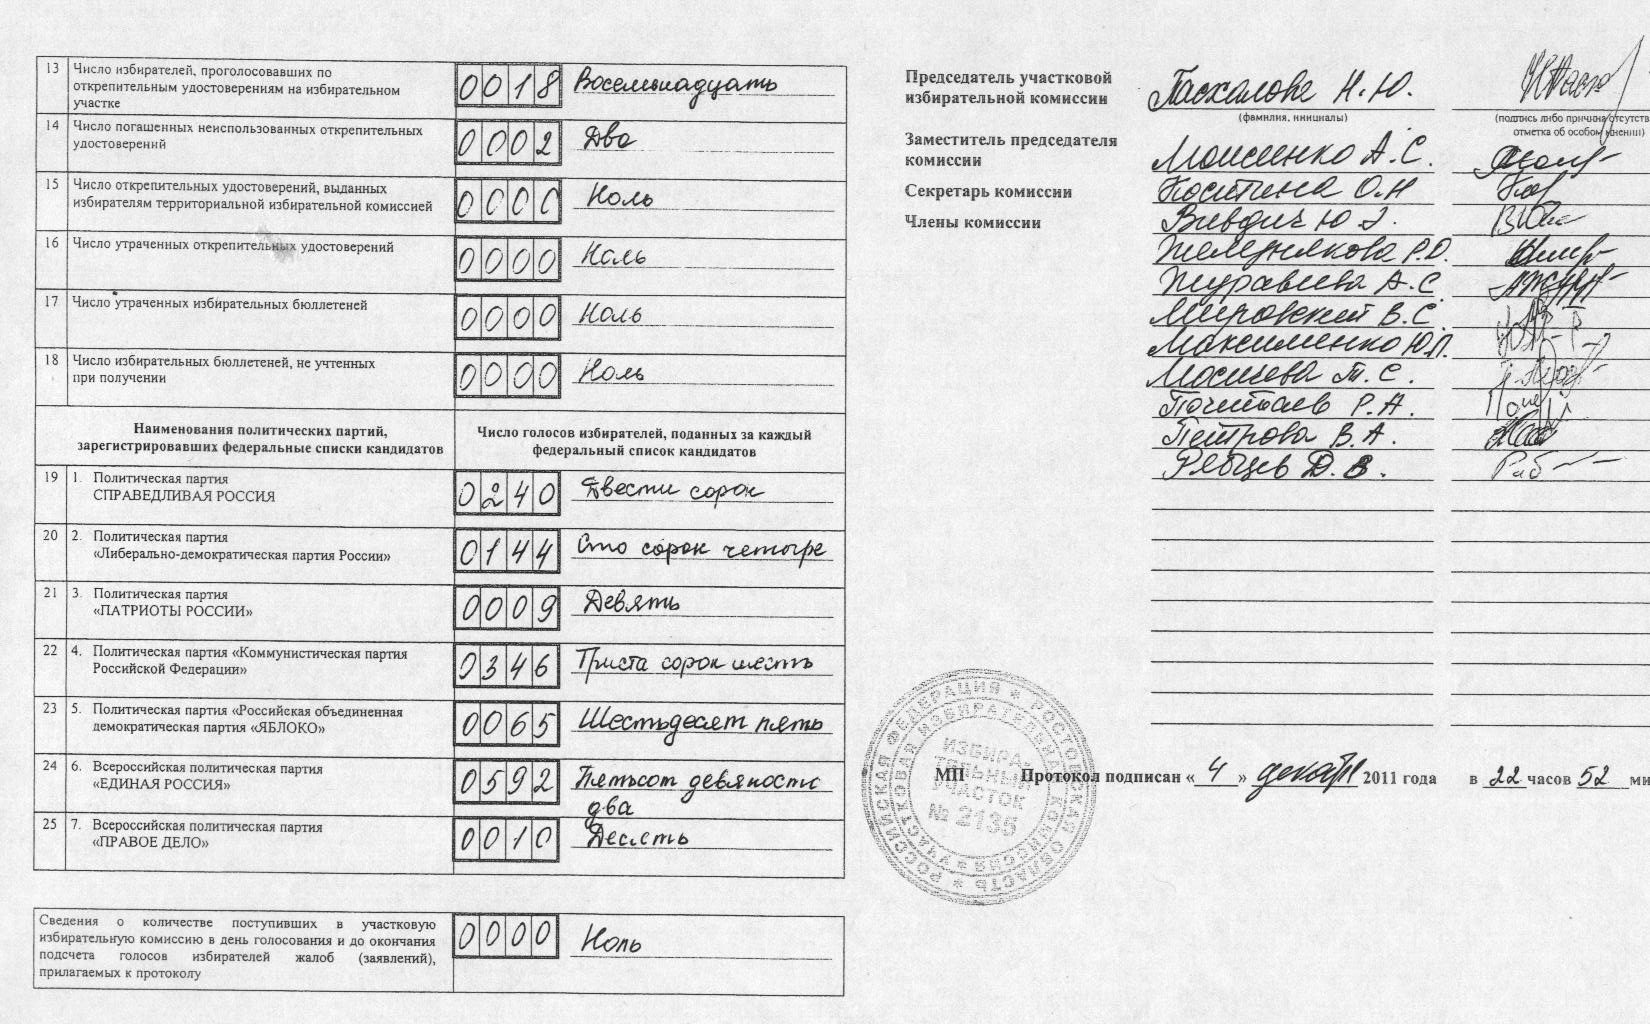 13 Число избирателей, проголосовавших по
открепительным удостоверениям на избирательном
участке
0018 Восемнадцать
14 Число погашенных неиспользованных открепительных
удостоверений
0002 Два
15 Число открепительных удостоверений, выданных
избирателям территориальной избирательной комиссией
0000 Ноль
16 Число утраченных открепительных удостоверений
0000 Ноль
17 Число утраченных избирательных бюллетеней
0000 Ноль
18 Число избирательных бюллетеней, не учтенных
при получении
0000 Ноль
Наименования политических партий,
зарегистрировавших федеральные списки кандидатов
Число голосов избирателей, поданных за каждый
федеральный список кандидатов
19 1. Политическая партия
СПРАВЕДЛИВАЯ РОССИЯ
0240 Двести сорок
20 2. Политическая партия
«Либерально-демократическая партия России»
0144 Сто сорок четыре
21 3. Политическая партия
«ПАТРИОТЫ РОССИИ»
0009 Девять
22 4. Политическая партия «Коммунистическая партия
Российской Федерации»
0346 Триста сорок шесть
23 5. Политическая партия «Российская объединенная
демократическая партия «ЯБЛОКО»
0065 Шестьдесят пять
24 6. Всероссийская политическая партия
«ЕДИНАЯ РОССИЯ»
0592 Пятьсот девяносто
два
25 7. Всероссийская политическая партия
«ПРАВОЕ ДЕЛО»
0010 Десять
Сведения о количестве поступивших в участковую
избирательную комиссию в день голосования и до окончания
подсчета голосов избирателей жалоб (заявлений),
прилагаемых к протоколу
0000 Ноль
Председатель участковой
избирательной комиссии
Пасхалова Н.Ю.
(фамилия, инициалы)
(подпись либо причина отсутств
отметка об особом мнении)
Заместитель председателя
комиссии
Моисеенко А.С.
Секретарь комиссии
О.Н
Члены комиссии
Ю
Р.О.
Журавлева А.С.
Мировский В.С.
Максименко Ю.П.
Т.С.
Р.А.
Петрова В.А.
Рябцев Д.В.
МП Протокол подписан «4» декабря 2011 года в 22 часов 52 ми
РОССИЙСКАЯ ФЕДЕРАЦИЯ * РОСТОВСКАЯ ОБЛАСТЬ *
УЧАСТКОВАЯ ИЗБИРАТЕЛЬНАЯ КОМИССИЯ *
ИЗБИРА-
ТЕЛЬНЫЙ
УЧАСТОК
№ 2135